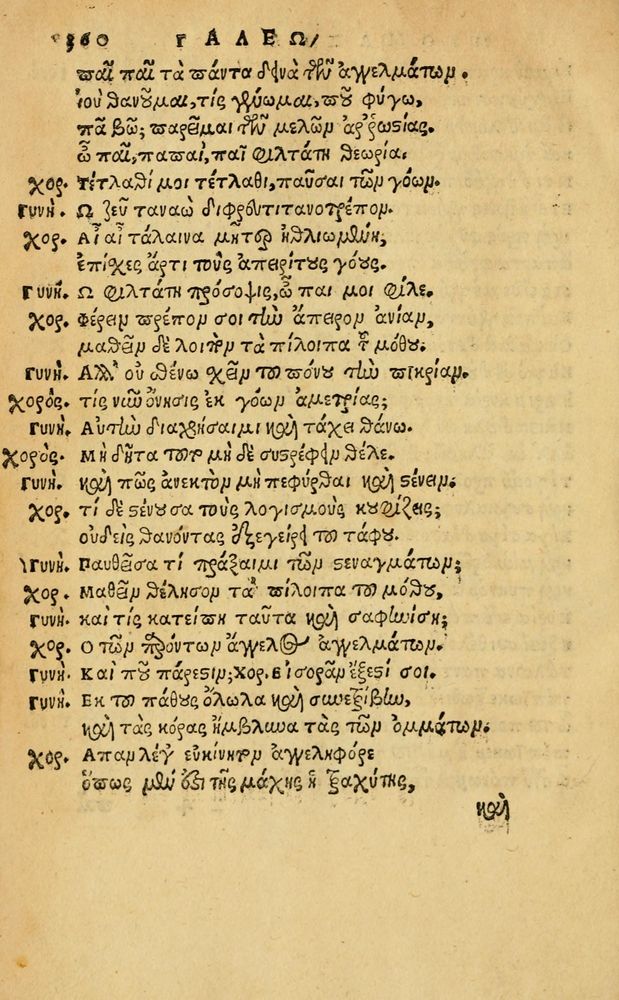 360 ΓΑΛΕΩ/
παῖ παῖ τὰ πάντα δεινὰ τῶν ἀγγελμάτων.
ἰοὺ θανοῦμαι, τίς γένωμαι, ποῦ φύγω,
πᾶ βῶ; παρεῖμαι τῶν μελῶν ἀῤῥωστίας.
ὦ παῖ, παπαῖ, παῖ φιλτάτη θεωρία.
χορ. Τέτλαθί μοι τέτλαθι, παῦσαι τῶν γόων.
γυνὴ. Ω ζεῦ ταναῶ διφρουτιτανοτρέπον.
χορ. Αἶ αἶ τάλαινα μῆτερ ἠθλιωμένη;
ἐπίχες ἄρτι τοὺς ἀπειρίτους γόους.
γυνὴ. Ω φιλτάτη πρόσοψις, ὦ παι μοι φίλε.
χορ. Φέρειν πρέπον σοι τὴν ἄπειρον ἀνίαν,
μαθεῖν δὲ λοιπὸν τὰ πίλοιπα τοῦ μόθου.
γυνὴ. Αλλ' οὐ σθένω σχεῖν τοῦ πόνου τὴν πικρίαν.
χορὸς. τίς νιῶ ὄνησις ἐκ γόων ἀμετρίας;
γυνὴ. Αὐτὴν διαχρήσαιμι καὶ τάχει θάνω.
χορὸς. Μὴ δῆτα τοῦτο μὴ δὲ συστρέφειν θέλε.
γυνὴ. καὶ πῶς ἀνεκτὸν μὴ πεφύρθαι καὶ στένειν.
χορ. τί δὲ στένουσα τοὺς λογισμοὺς κουφίζεις;
οὐδεὶς θανόντας ἐξεγείρει τοῦ τάφου.
γυνὴ. Παυθεῖσα τί πράξαιμι τῶν στεναγμάτων;
χορ. Μαθεῖν θέλησον τἀ πίλοιπα τοῦ μόθου,
γυνὴ. καὶ τίς κατείπῃ ταῦτα καὶ σαφωνίσῃ;
χορ. Ο τῶν παρόντων ἄγγελος ἀγγελμάτων.
γυνὴ. Καὶ ποῦ πάρεστιν; Χορ. εἰσορᾶν ἔξεστί σοι.
γυνὴ. Εκ τοῦ πάθους ὄλωλα καὶ συνεξέβην,
καὶ τὰς κόρας ἤμβλωνα τὰς τῶν ὀμμάτων.
χορ. Απαν λέγε εὐκίνητον ἀγγεληφόρε
ὅπως μὲν ἐπὶ τῆς μάχης ἡ ταχύτης,
καὶ